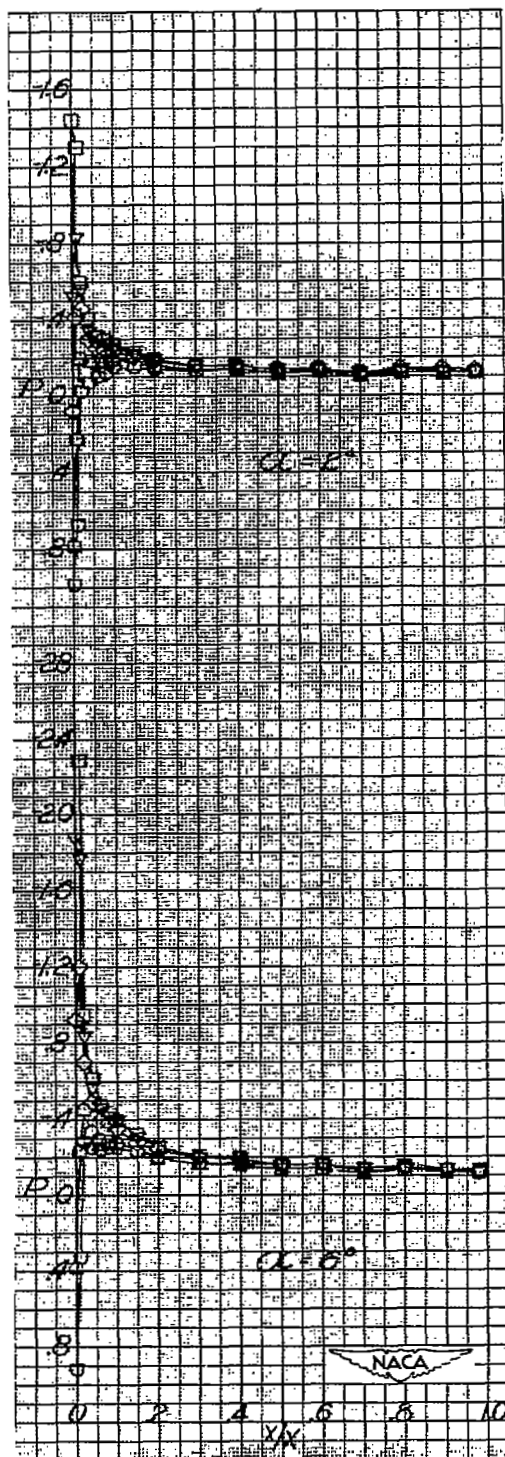 -1.6
-1.2
-.8
-.4
P 0
.4
α = 2°
.8
-2.8
-2.4
-2.0
-1.2
-.8
-.4
P 0
.4
α = 6°
.8
NACA
0 .2 .4 .6 .8 1.0
x/x